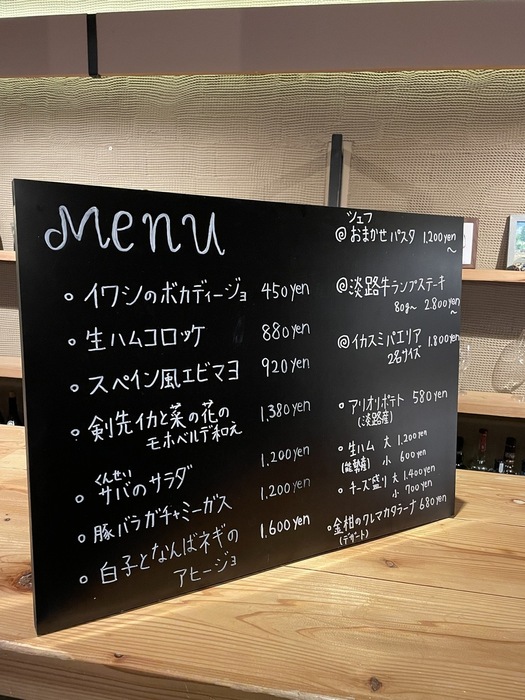 Menu
◦ イワシのボカディージョ 450yen
◦ 生ハムコロッケ 880yen
◦ スペイン風エビマヨ 920yen
◦ 剣先イカと菜の花の
モホベルデ和え 1,380yen
くんせい
◦ サバのサラダ 1,200yen
◦ 豚バラガチャミーガス 1,200yen
◦ 白子となんばネギの
アヒージョ 1,600yen
シェフ
@おまかせパスタ 1,200yen
~
@淡路牛ランプステーキ
80g~ 2,800yen
~
@イカスミパエリア
2名サイズ 1,800yen
◦ アリオリポテト 580yen
(淡路産)
◦ 生ハム 大 1,200yen
小 600yen
◦ チーズ盛り 大 1,400yen
小 700yen
◦ 金柑のクレマカタラーナ 680yen
(デザート)